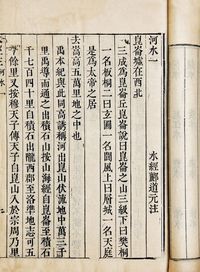 河水一　水經　酈道元注
崑崙墟在西北
三成爲崑崙丘崑崙說曰崑崙之山三級下曰樊桐
一名板桐二曰玄圃一名閬風上曰層城一名天庭
是爲太帝之居
去嵩高五萬里地之中也
禹本紀與此同高誘稱河出崑山伏流地中萬三千
里禹導而通之出積石山按山海經自崑崙至積石
千七百四十里自積石出隴西郡至洛準地志可五
千餘里又按穆天子傳天子自崑山入於宗周乃里